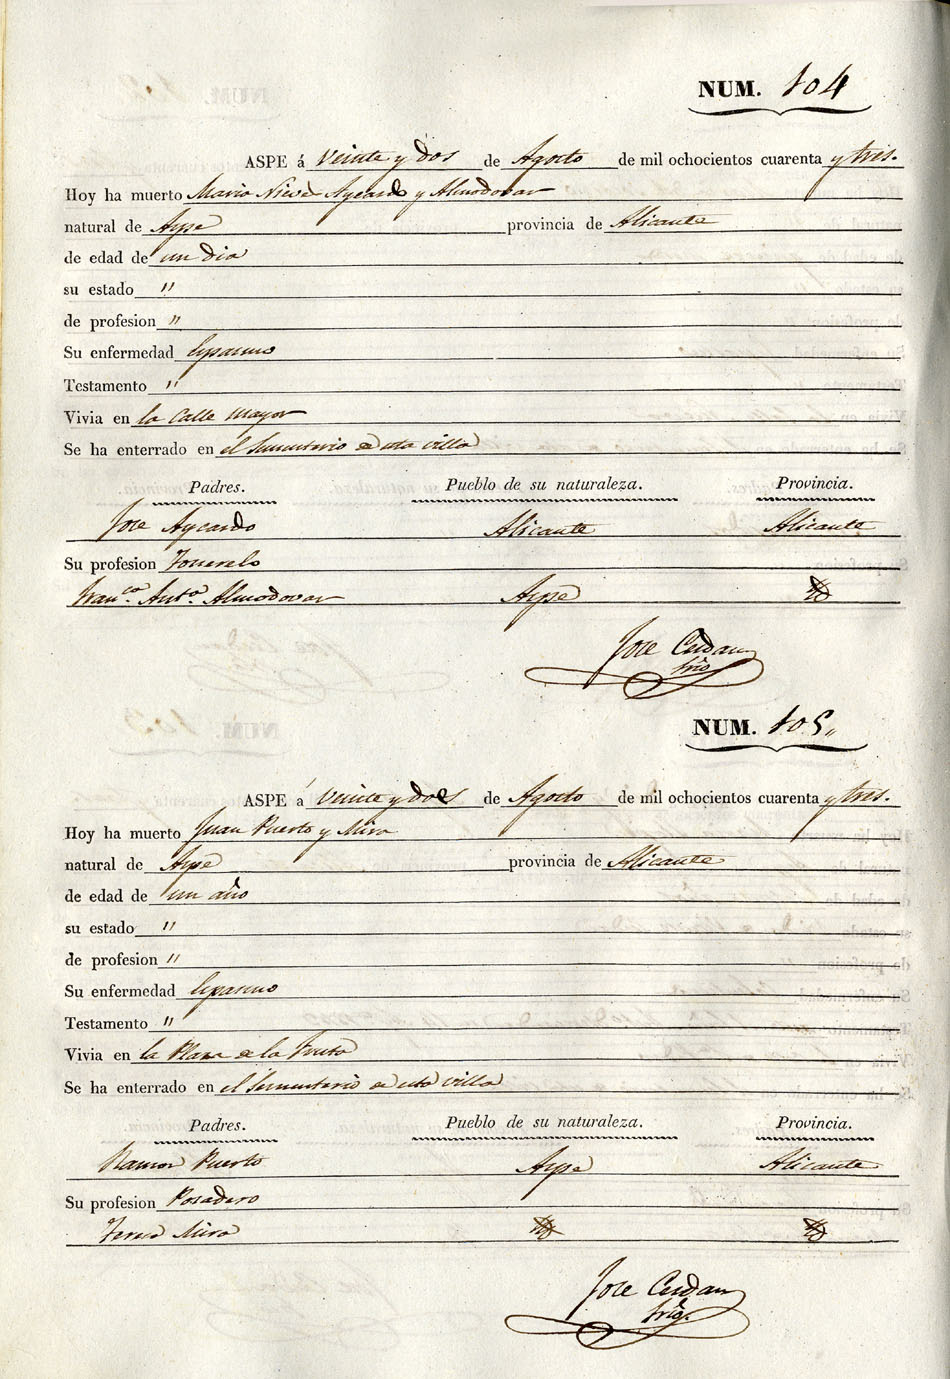 NUM. 104
ASPE á Veinte y dos de Agosto de mil ochocientos cuarenta y tres.
Hoy ha muerto Maria Nieve Aycardo y Almodovar
natural de Aspe provincia de Alicante
de edad de un dia
su estado "
de profesion "
Su enfermedad Espasmo
Testamento "
Vivia en la Calle Mayor
Se ha enterrado en el Sementerio de esta villa
Padres. Pueblo de su naturaleza. Provincia.
Jose Aycardo Alicante Alicante
Su profesion
Fran.ca Ant.a Almodovar Aspe
Jose Cerdan
NUM. 105"
ASPE á Veinte y dos de Agosto de mil ochocientos cuarenta y tres.
Hoy ha muerto Juan Puerto y Miro
natural de Aspe provincia de Alicante
de edad de un año
su estado "
de profesion "
Su enfermedad Espasmo
Testamento "
Vivia en la Plaza de la Fruta
Se ha enterrado en el Sementerio de esta villa
Padres. Pueblo de su naturaleza. Provincia.
Ramon Puerto Aspe Alicante
Su profesion Posadero
Teresa Miro
Jose Cerdan